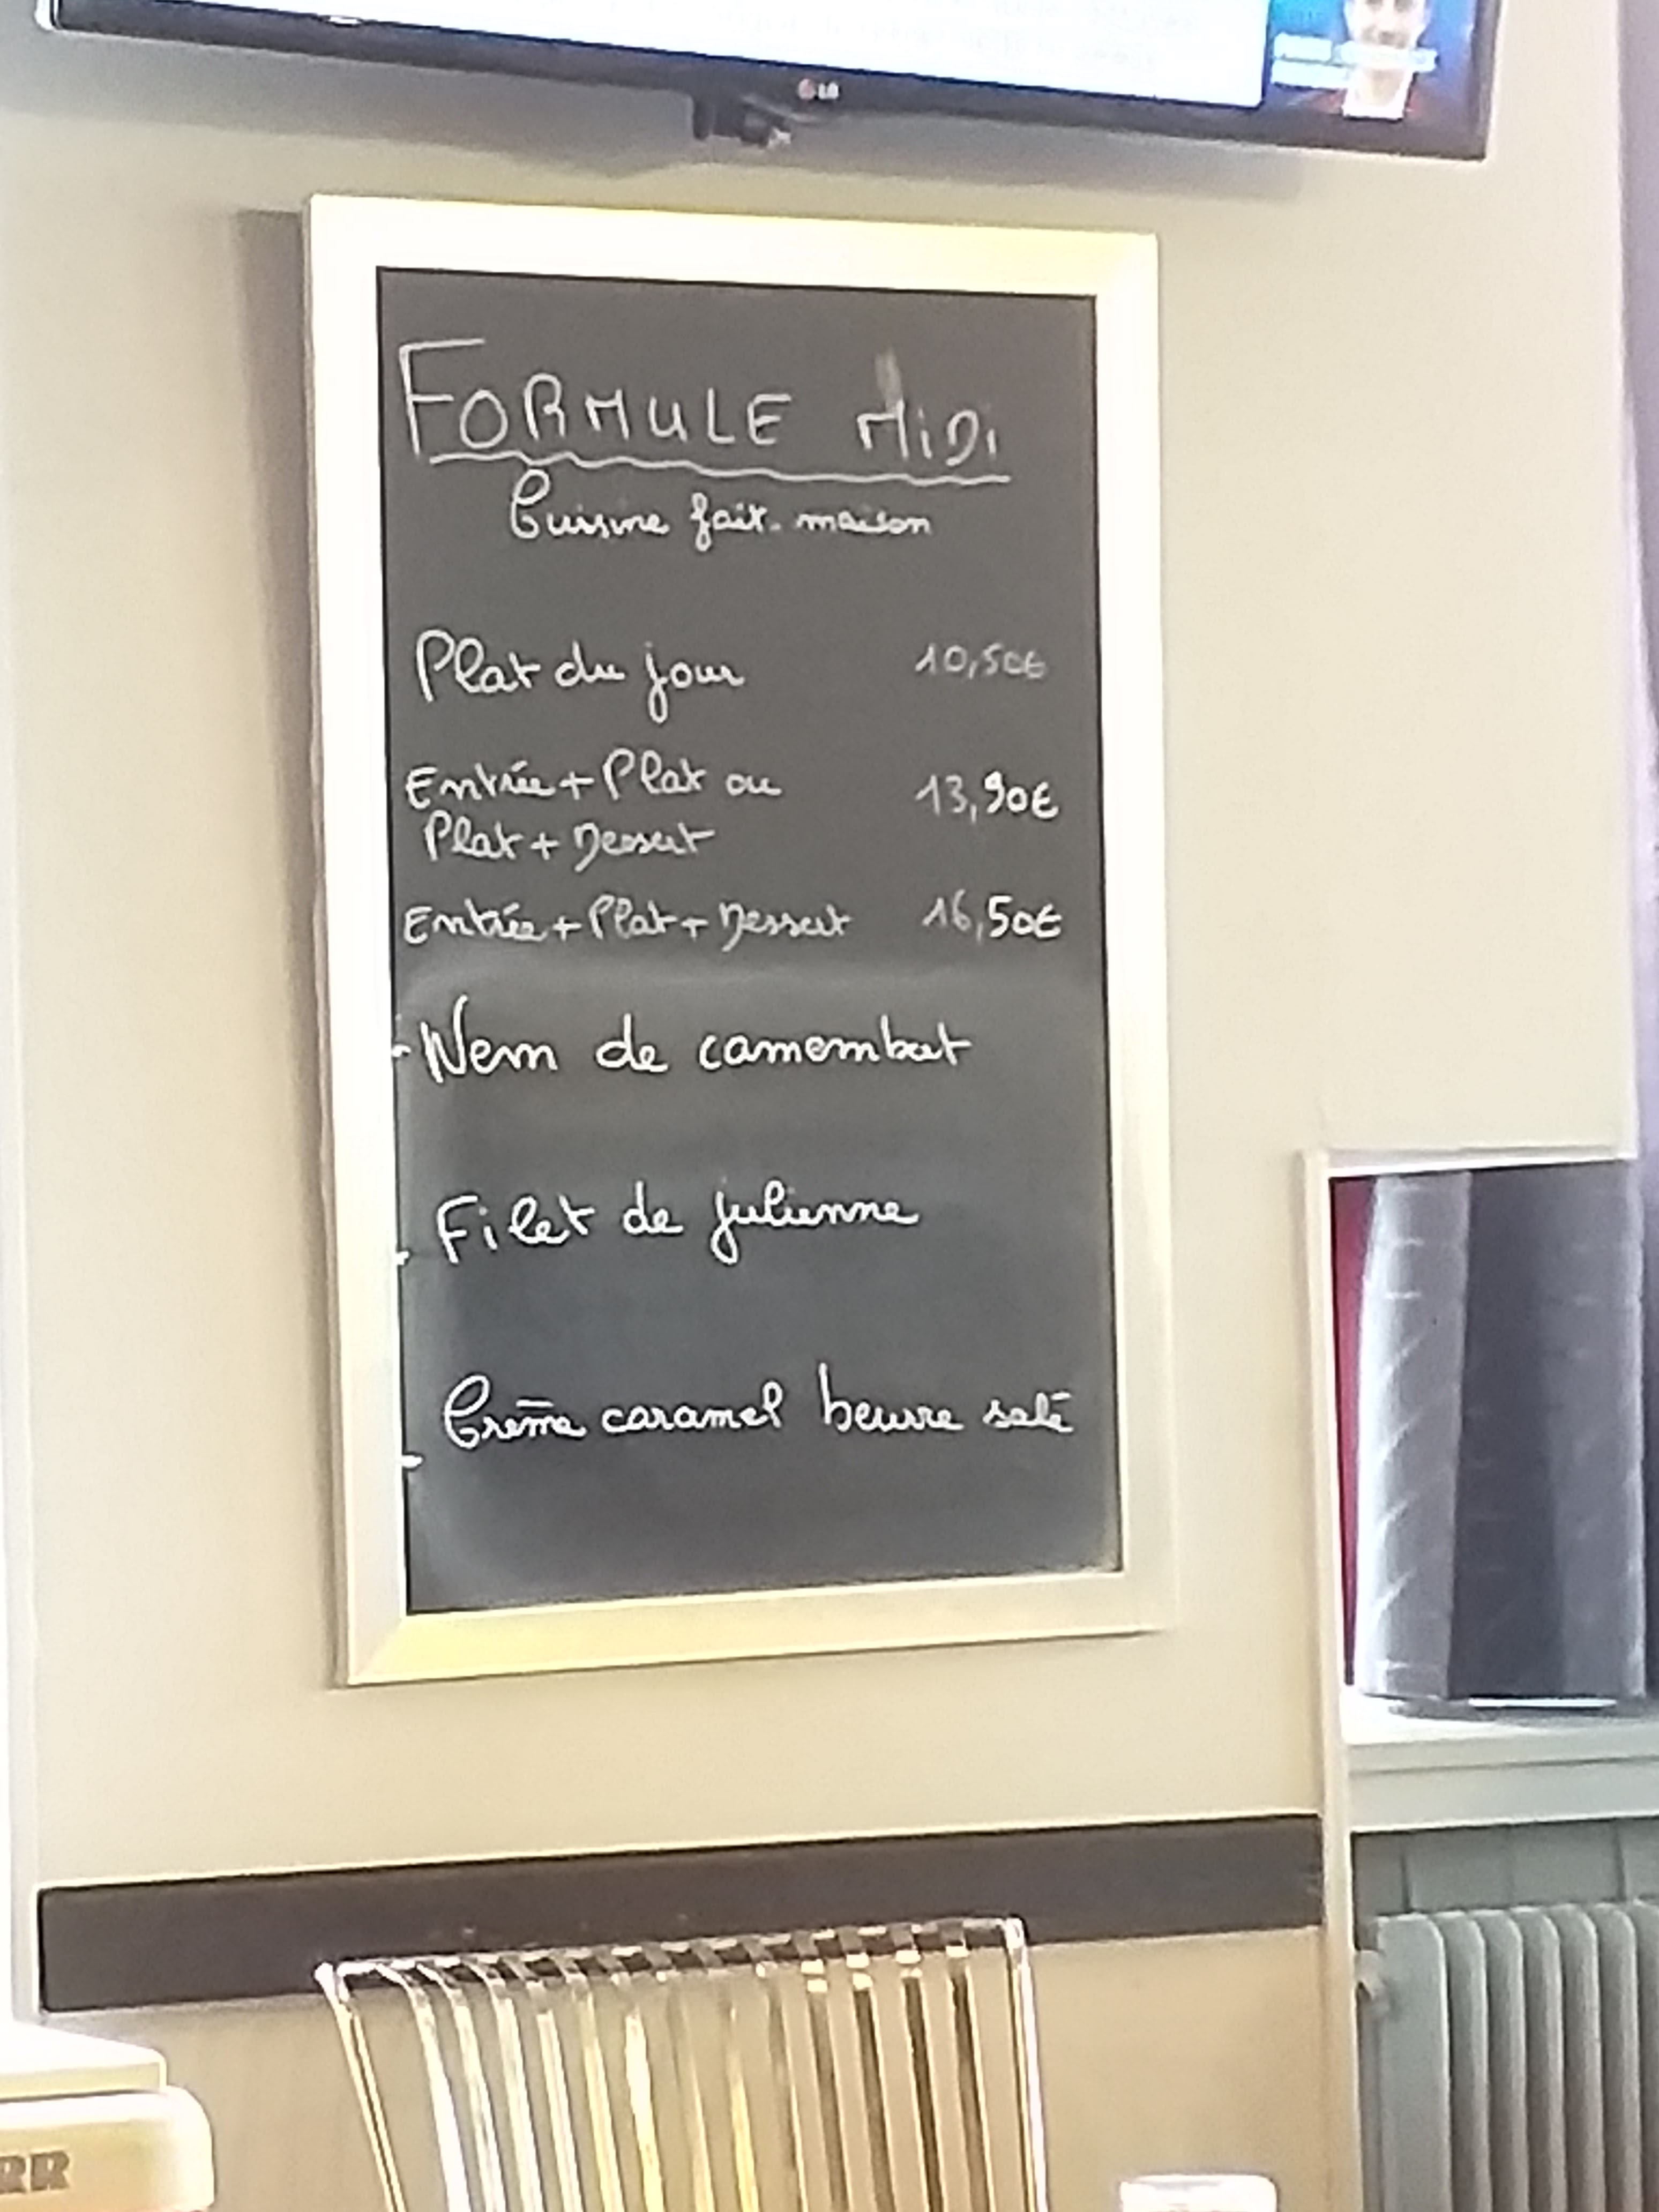 LG
FORMULE MiDi
Cuisine fait-maison
Plat du jour 10,50€
Entrée + Plat ou 13,90€
Plat + Dessert
Entrée + Plat + Dessert 16,50€
- Nem de camembert
- Filet de julienne
- Crème caramel beurre salé
RR